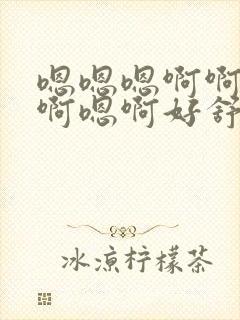 嗯嗯嗯啊啊
啊嗯啊好舒
冰凉柠檬茶